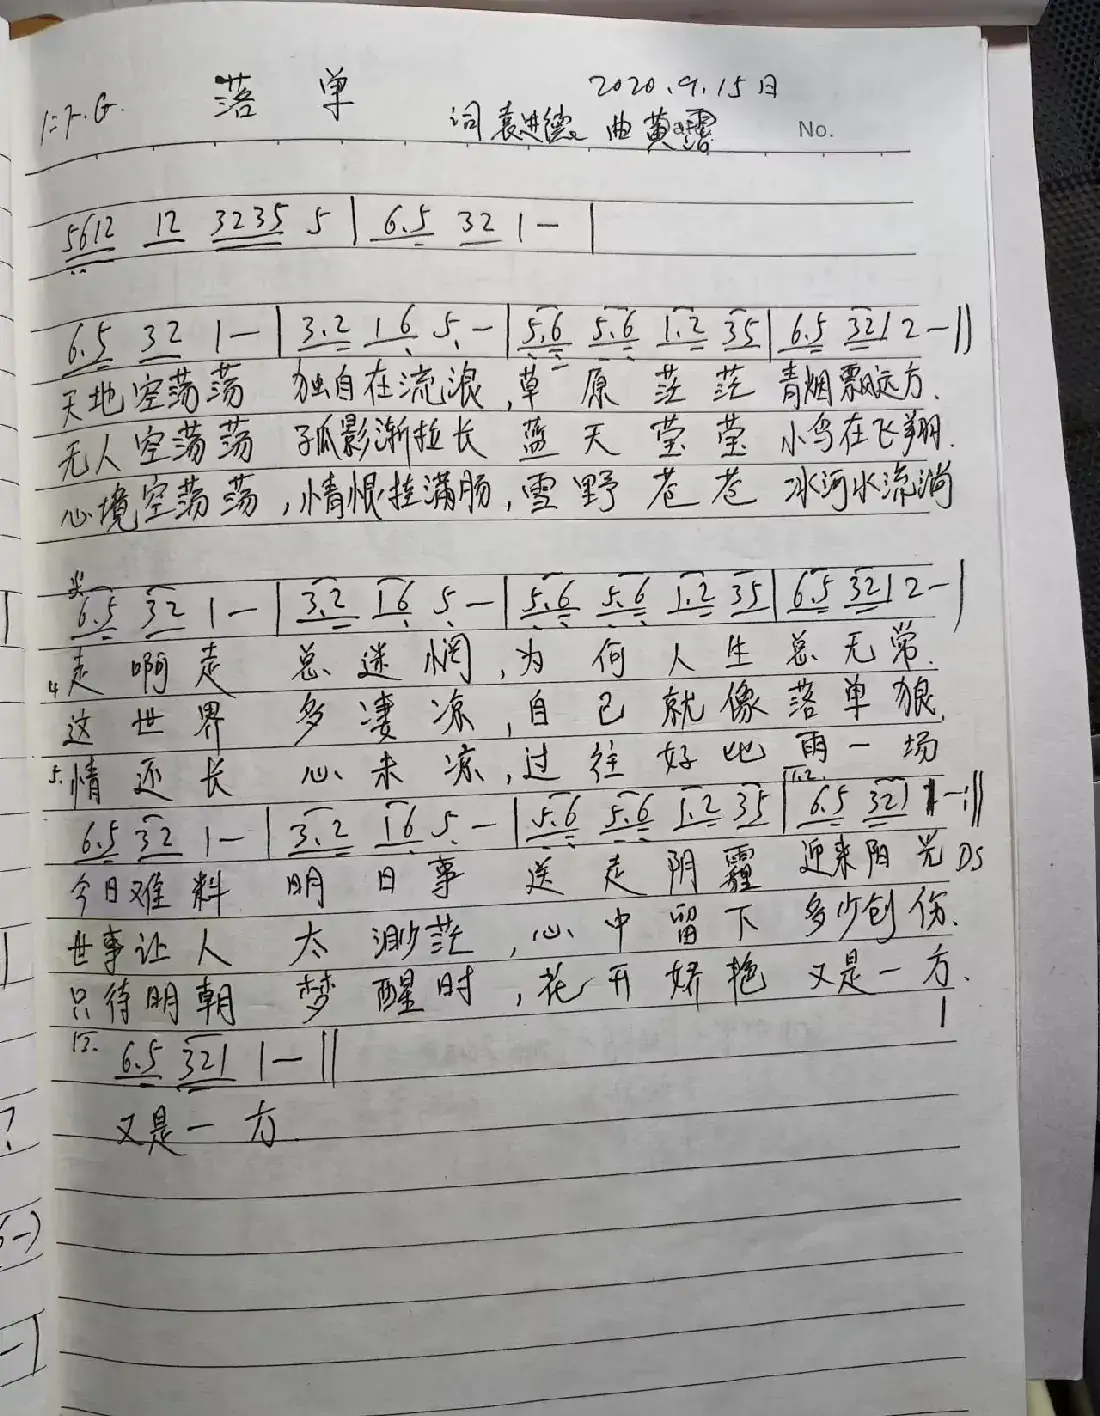 落单 2020.9.15日
词袁进德 曲黄 No.
5612 12 3235 5 | 6.5 32 1 - |
6.5 32 1 - | 3.2 16 5 - | 5.6 5.6 1.2 35 | 6.5 321 2 - ||
天地空荡荡 独自在流浪,草原茫茫 青烟飘远方.
无人空荡荡 孤影渐拉长 蓝天莹莹 小鸟在飞翔.
心境空荡荡,情恨挂满肠,雪野苍苍 冰河水流淌
6.5 32 1 - | 3.2 16 5 - | 5.6 5.6 1.2 35 | 6.5 321 2 - |
走啊走 总迷惘,为何人生总无常.
4 这世界 多凄凉,自己就像落单狼.
5. 情还长 心未凉,过往好比雨一场
6.5 32 1 - | 3.2 16 5 - | 5.6 5.6 1.2 35 | 6.5 321 1 - :||
今日难料 明日事 送走阴霾 迎来阳光 DS
世事让人 太渺茫,心中留下 多少创伤.
只待明朝 梦醒时,花开娇艳 又是一方.
6.5 321 1 - ||
又是一方.